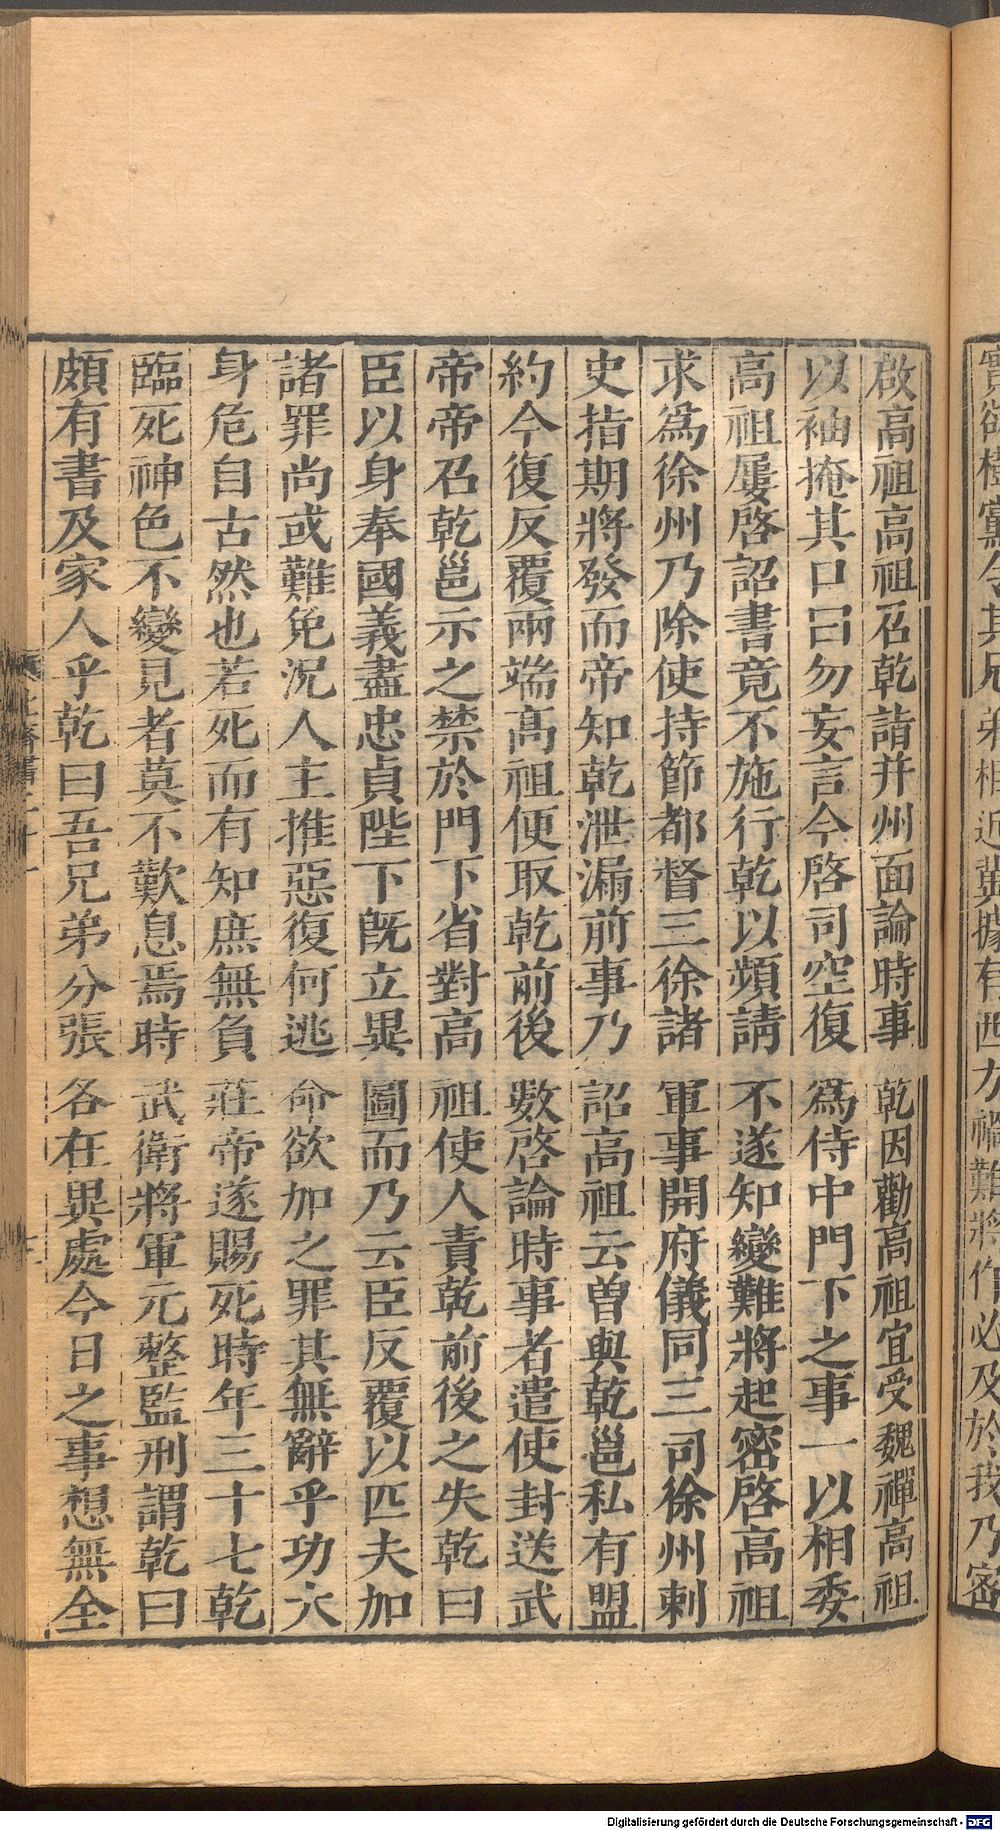 啟高祖高祖召乾詣并州面論時事乾因勸高祖宜受魏禪高祖
以袖掩其口曰勿妄言今啓司空復爲侍中門下之事一以相委
高祖屢啓詔書竟不施行乾以頻請不遂知變難將起密啓高祖
求爲徐州乃除使持節都督三徐諸軍事開府儀同三司徐州刺
史指期將發而帝知乾泄漏前事乃詔高祖云曽與乾邕私有盟
約今復反覆兩端高祖便取乾前後數啓論時事者遣使封送武
帝帝召乾邕示之禁於門下省對高祖使人責乾前後之失乾曰
臣以身奉國義盡忠貞陛下旣立異圖而乃云臣反覆以匹夫加
諸罪尚或難免況人主推惡復何逃命欲加之罪其無辭乎功大
身危自古然也若死而有知庶無負莊帝遂賜死時年三十七乾
臨死神色不變見者莫不歎息焉時武衛將軍元整監刑謂乾曰
頗有書及家人乎乾曰吾兄弟分張各在異處今日之事想無全
Digitalisierung gefördert durch die Deutsche Forschungsgemeinschaft - DFG